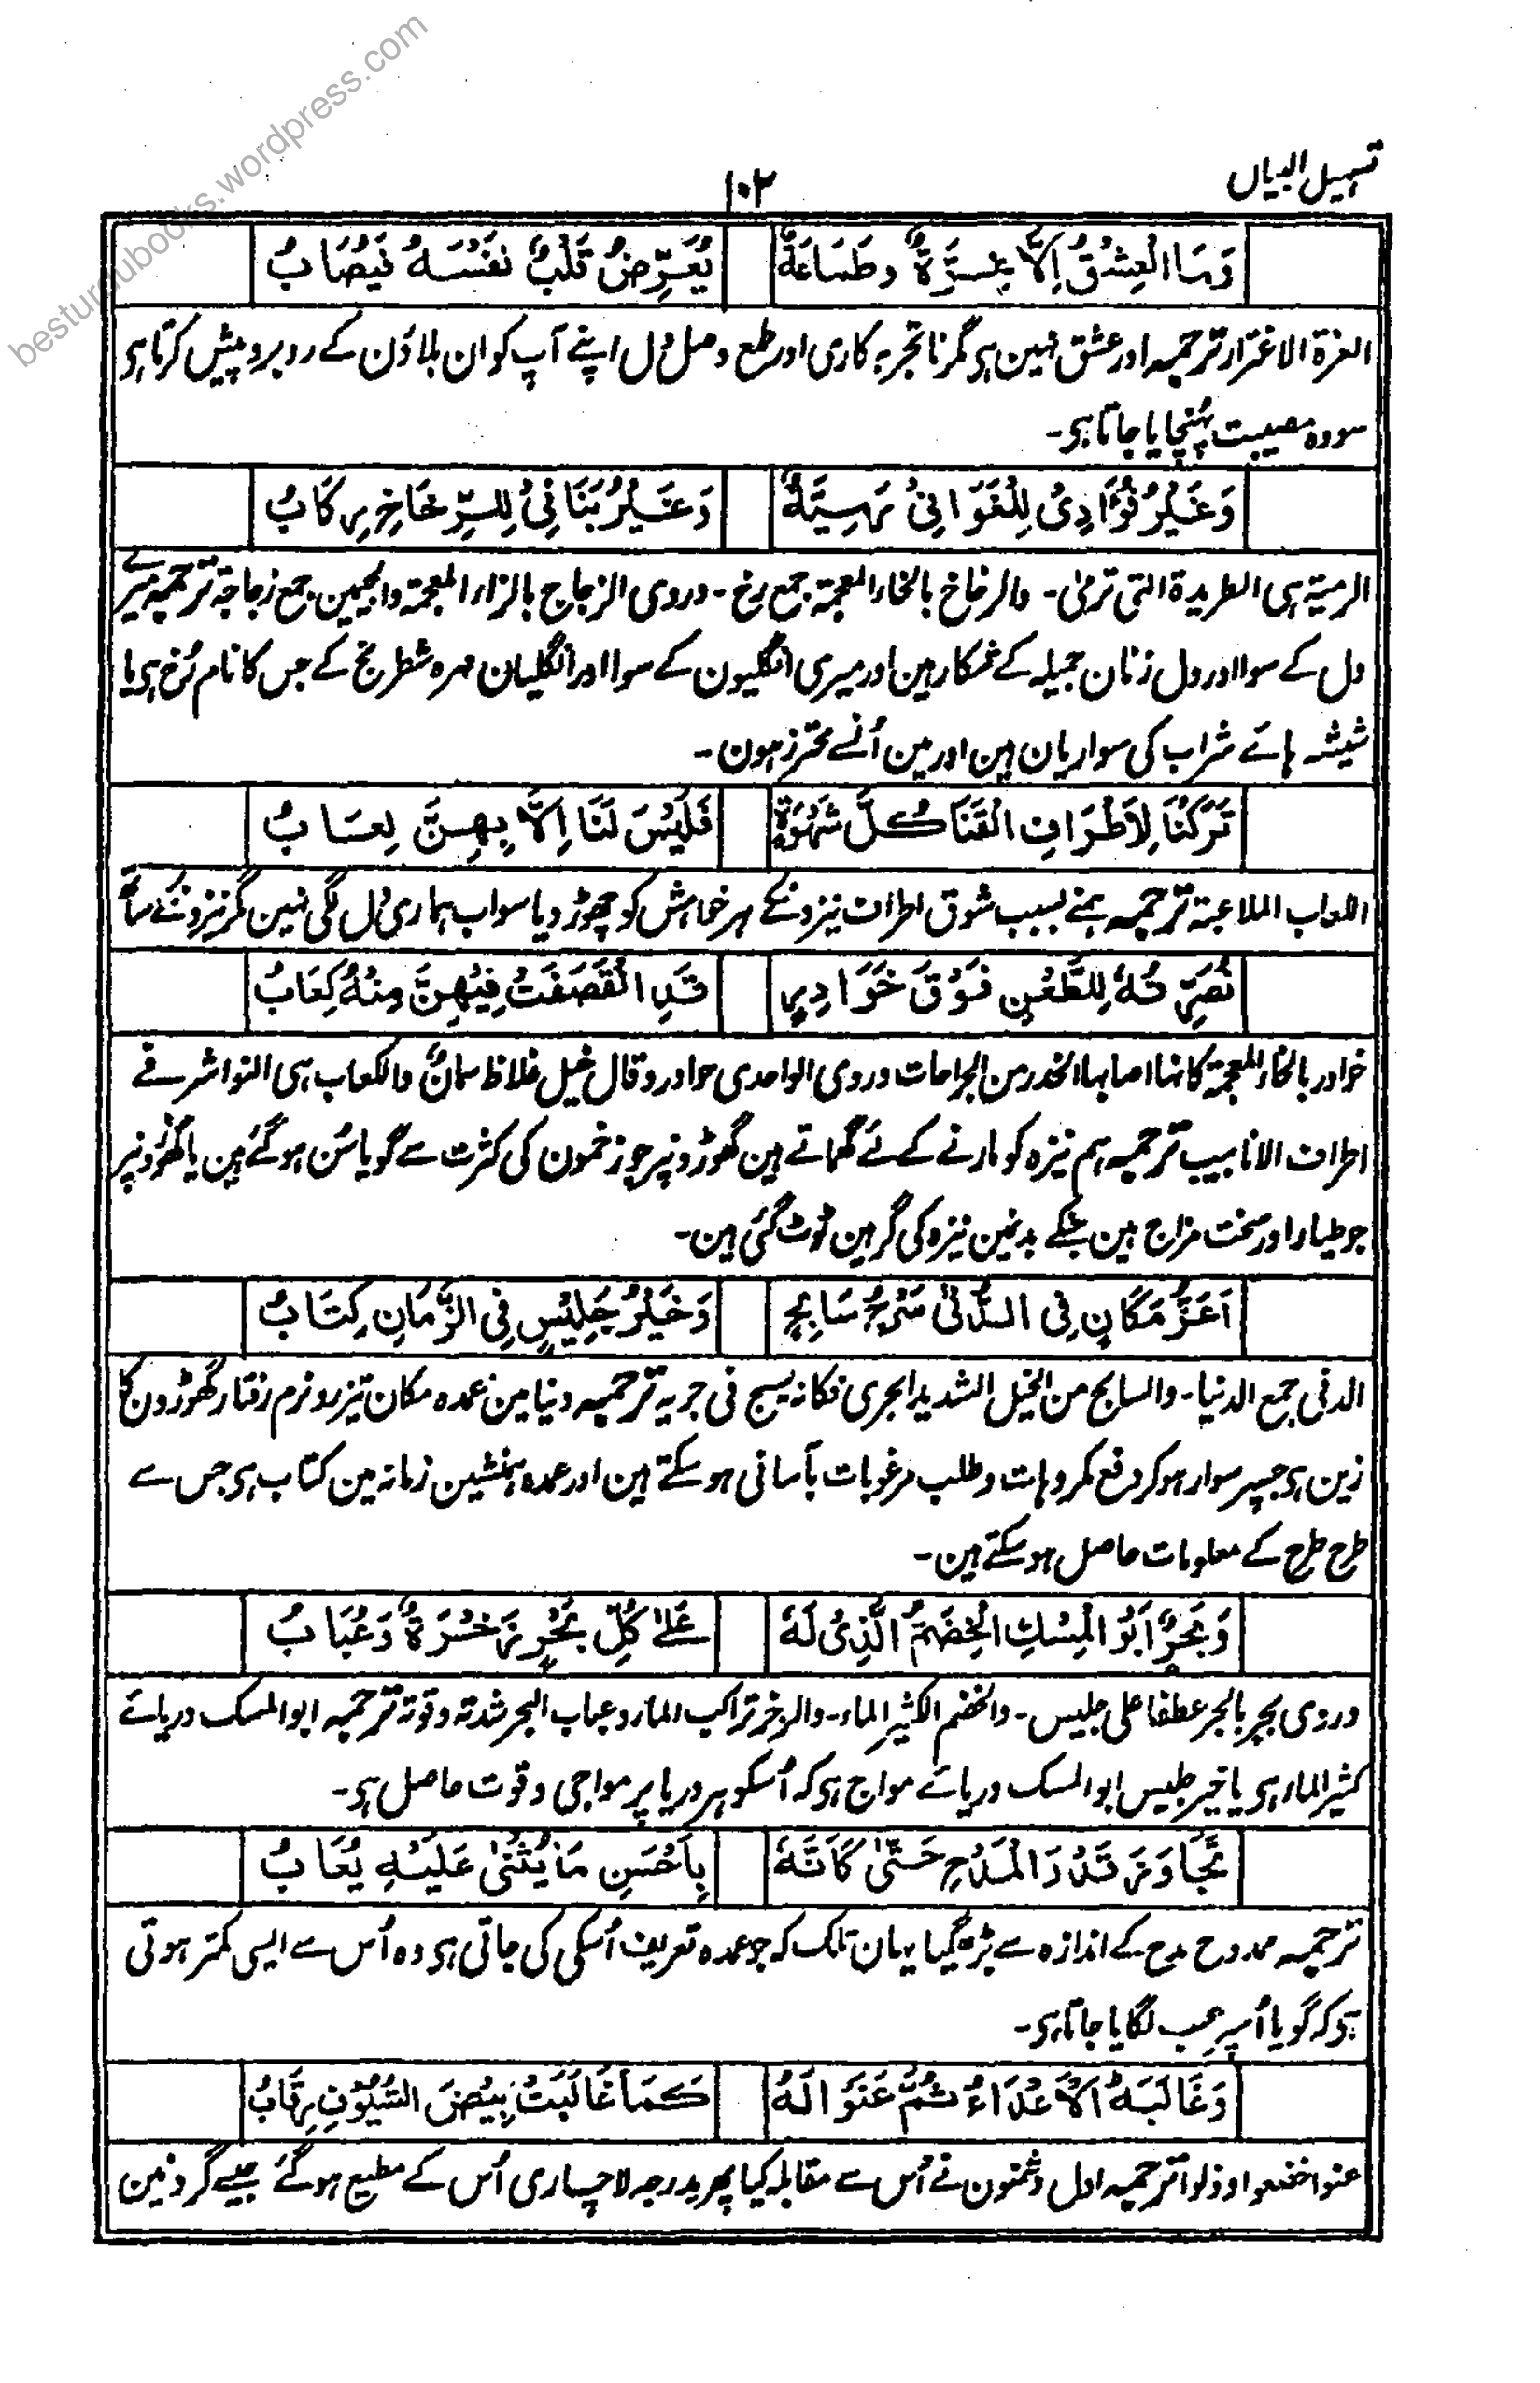 تسہیل البیان
۱۰۲
وَمَا الْعِشْقُ اِلَّا غِرَّةٌ وطَمَاعَةٌ یُعَرِّضُ قَلْبٌ نَفْسَهُ فَیُصَابُ
الغرۃ الاغترار ترجمہ اور عشق نہین ہی مگر ناتجربہ کاری اور طمع وصل دل اپنے آپ کو ان بلاؤن کے روبرو پیش کرتا ہی
سو وہ مصیبت پہنچایا جاتا ہی۔
وَغَیْرُ فُؤَادِیْ لِلْغَوَانِیْ رَمِیَّةٌ وَغَیْرُ بَنَانِیْ لِلرِّخَاخِ رِکَابُ
الرمیۃ ہی الطریدۃ التی ترمیٰ۔ والرخاخ بالخاء المعجمۃ جمع رخ۔ وروی الزجاج بالزاء المعجمۃ والجیمین جمع زجاجۃ ترجمہ میرے
دل کے سوا اور دل زنان جمیلہ کے شکار ہین اور میری انگلیون کے سوا اور انگلیان مہرہ شطرنج کے جس کا نام رُخ ہی یا
شیشہ ہائے شراب کی سواریان ہین اور مین اُنسے محترز ہون۔
تَرَکْنَا لِاَطْرَافِ الْقَنَا کُلَّ شَهْوَةٍ فَلَیْسَ لَنَا اِلَّا بِهِنَّ لِعَابُ
اللعاب الملاعبۃ ترجمہ ہمنے بسبب شوق اطراف نیزونکے ہر خواہش کو چھوڑ دیا سو اب ہماری دل لگی نہین مگر نیزونکے ساتھ
نُصَرِّفُهُ لِلطَّعْنِ فَوْقَ خَوَادِرٍ قَدِ انْقَصَفَتْ فِیْهِنَّ مِنْهُ کِعَابُ
خوادر بالخاء المعجمۃ کانہا اصابہا الخدر من الجراحات وروی الواحدی حوادر وقال خیل غلاظ سمانٌ والکعاب ہی النواشز فے
اطراف الانابیب ترجمہ ہم نیزہ کو مارنے کے لئے گھماتے ہین گھوڑونپر جو زخمون کی کثرت سے گویا سُن ہوگئے ہین یا گھوڑونپر
جو طیار اور سخت مزاج ہین جنکے بدنمین نیزہ کی گرہین ٹوٹ گئی ہین۔
اَعَزُّ مَکَانٍ فِی الدُّنٰی سَرْجُ سَابِحٍ وَخَیْرُ جَلِیْسٍ فِی الزَّمَانِ کِتَابُ
الدنی جمع الدنیا۔ والسابح من الخیل الشدید الجری فکانہ یسبح فی جریہ ترجمہ دنیا مین عمدہ مکان تیز رو نرم رفتار گھوڑون کا
زین ہی جسپر سوار ہوکر دفع مکروہات وطلب مرغوبات بآسانی ہوسکتے ہین اور عمدہ ہمنشین زمانہ مین کتاب ہی جس سے
طرح طرح کے معلومات حاصل ہوسکتے ہین۔
وَبَحْرٌ اَبُو الْمِسْكِ الْخِضَمُّ الَّذِیْ لَهُ عَلٰے کُلِّ بَحْرٍ زَخْرَةٌ وَعُبَابُ
وروی بحر بالجر عطفا علی جلیس۔ والخضم الکثیر الماء۔ والزخر تراکب الماء وعباب البحر شدتہ وقوتہ ترجمہ ابو المسک دریائے
کثیر الماء ہی یا خیر جلیس ابو المسک دریائے مواج ہی کہ اُسکو ہر دریا پر مواجی وقوت حاصل ہی۔
تَجَاوَزَ قَدْرَ الْمَدْحِ حَتّٰی کَاَنَّهُ بِاَحْسَنِ مَا یُثْنٰی عَلَیْهِ یُعَابُ
ترجمہ ممدوح مدح کے اندازہ سے بڑھ گیا یہان تلک کہ جو عمدہ تعریف اُسکی کی جاتی ہی وہ اُس سے ایسی کمتر ہوتی
ہی کہ گویا اُسپر عیب لگایا جاتا ہی۔
وَغَالَبَهُ الْاَعْدَاءُ ثُمَّ عَنَوْا لَهُ کَمَا غَالَبَتْ بِیْضَ السُّیُوْفِ رِقَابُ
عنوا خضعوا وذلوا ترجمہ اول دشمنون نے اُس سے مقابلہ کیا پھر بدرجہ لاچاری اُس کے مطیع ہوگئے جیسے گردنین
besturdubooks.wordpress.com